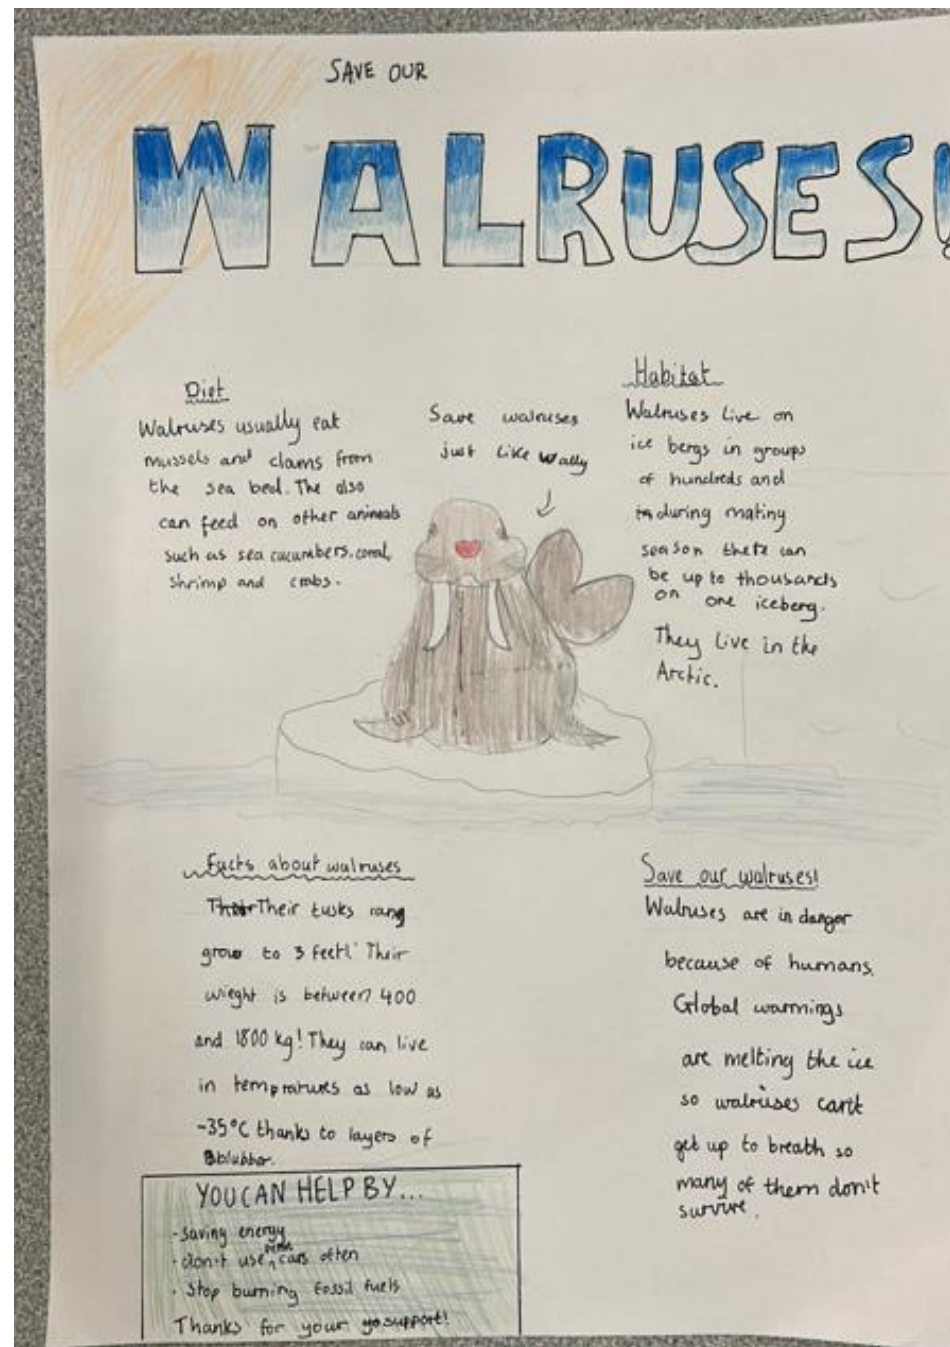 SAVE OUR
WALRUSES!
Diet
Walruses usually eat
mussels and clams from
the sea bed. The also
can feed on other animals
such as sea cucumbers, coral,
shrimp and crabs.
Save walruses
just like Wally
Habitat
Walruses live on
ice bergs in groups
of hundreds and
during mating
season there can
be up to thousands
on one iceberg.
They live in the
Arctic.
Facts about walruses
Their tusks
grow to 3 feet! Their
wieght is between 400
and 1800 kg! They can live
in tempratures as low as
-35°C thanks to layers of
blubber.
Save our walruses!
Walruses are in danger
because of humans.
Global warmings
are melting the ice
so walruses can't
get up to breath so
many of them don't
survive.
YOU CAN HELP BY...
- saving energy
· don't use cars often
· Stop burning fossil fuels
Thanks for your support!